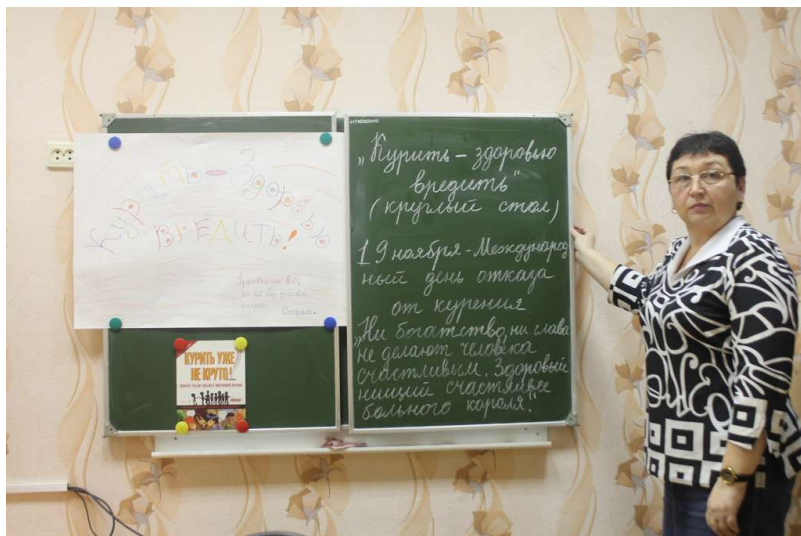 Курить - Здоровью
ВРЕДИТЬ!
не всё, но всё без здоровья
ничто.
Сократ.
КУРИТЬ УЖЕ
НЕ КРУТО!
„Курить – здоровью
вредить“
(круглый стол)
19 ноября - Международ
ный день отказа
от курения
„Ни богатство, ни слава
не делают человека
счастливым. Здоровый
нищий счастливее
больного короля“.